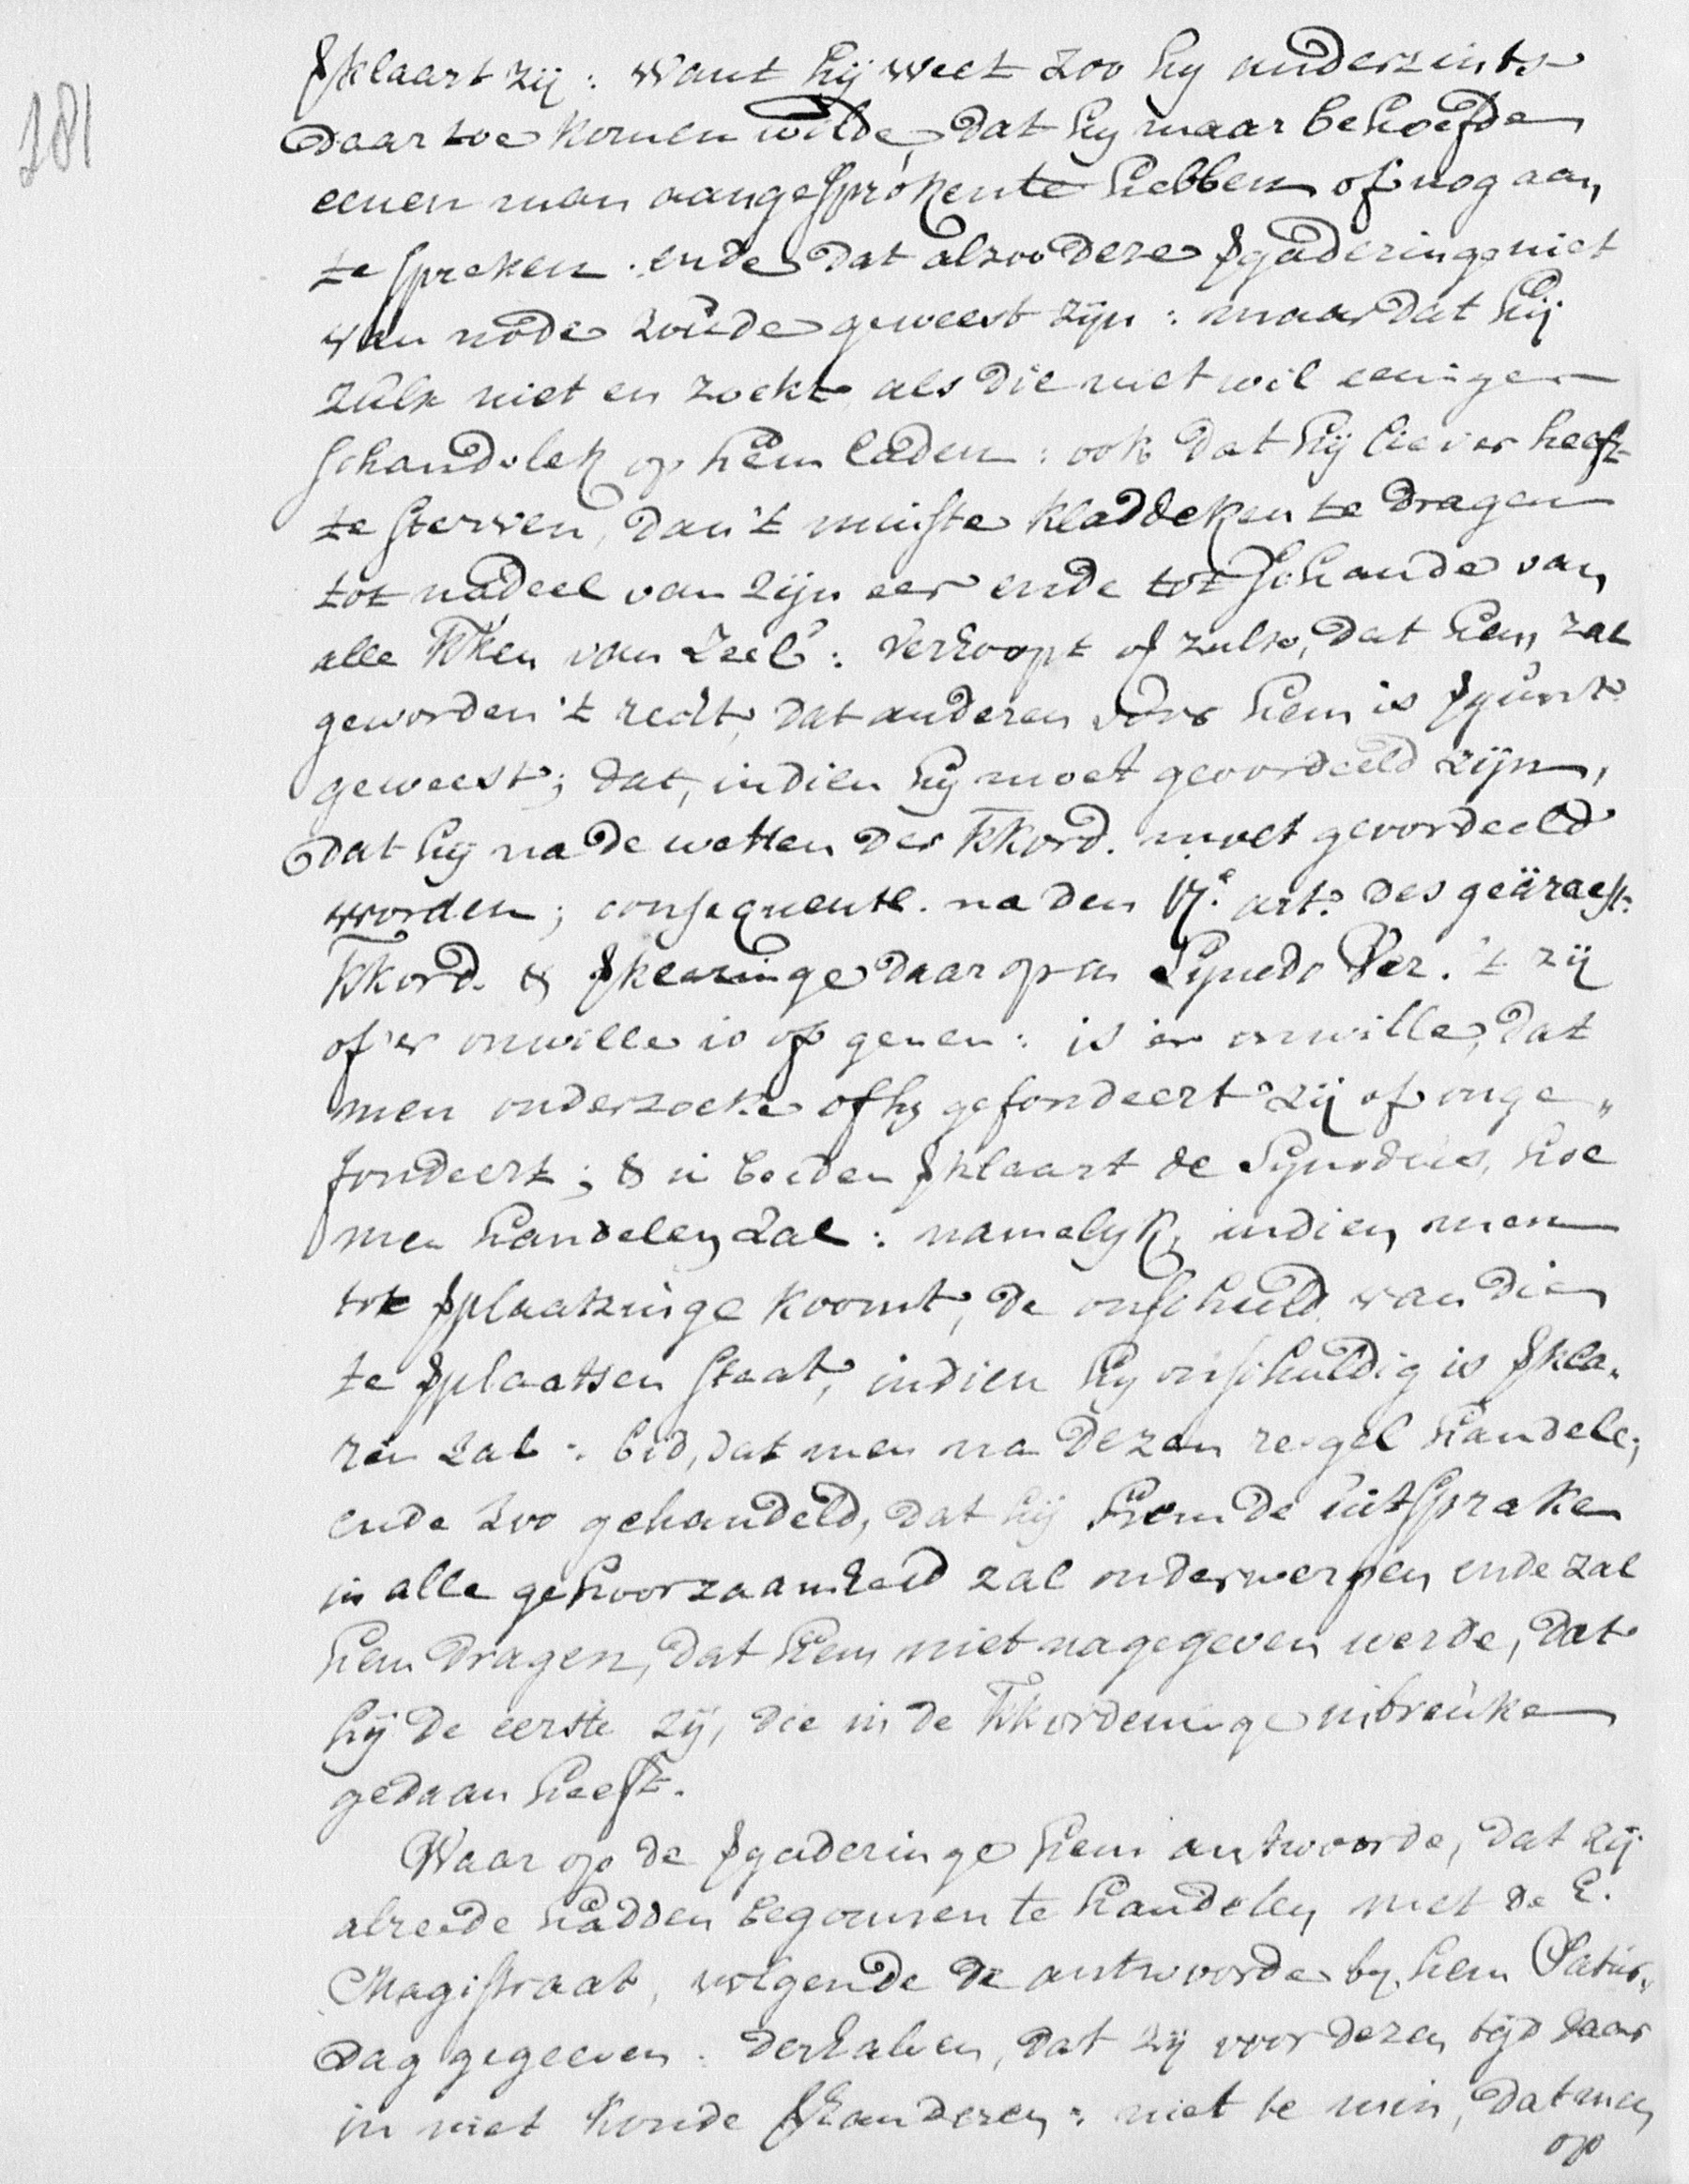 181
ꝟklaart zij: want hij weet zoo hy anderzints
daar toe komen wilde, dat hy maar behoefde
eenen man aangesproken te hebben of nog aan
te spreken. ende dat alzoo deze ꝟgaderinge niet
van node zoude geweest zijn: maar dat hij
zulx niet en zoekt, als die niet wil eenigen
schandvlek op hem laden: ook dat hij liever heeft
te sterven, dan 't minste kladdeken te dragen
tot nadeel van zijn eer ende tot schande van
alle KKen van Zeel': verhoopt of zulx, dat hem zal
geworden 't recht, dat anderen voor hem is ꝟgunt
geweest; dat, indien hij moet geoordeeld zijn,
dat hij na de wetten der KKord. moet geoordeeld
worden; consequentl. na den 17.e art. des geäraest.
KKord. & ꝟklaringe daar op in Synodo Ver. 't zij
of'er onwille is of geenen: is er onwille, dat
men onderzoeke of hy gefondeert zij of onge„
fondeert; & in beiden ꝟklaart de Synodus, hoe
men handelen zal: namelijk, indien men
tot ꝟplaatzinge koomt, de onschuld van dien
te ꝟplaatsen staat, indien hy onschuldig is ꝟkla„
ren zal: bid, dat men na dezen regel handele;
ende zoo gehandeld, dat hij hem de uitsprake
in alle gehoorzaamheid zal onderwerpen ende zal
hem dragen, dat hem niet nagegeven werde, dat
hij de eerste zij, die in de KKordeninge inbreuke
gedaan heeft.
Waar op de ꝟgaderinge hem antwoorde, dat zij
alreede hadden begonnen te handelen met de E.
Magistraat, volgende de antwoorde by hem Satur„
dag gegeeven: derhalven, dat zij voor dezen tijd daar
in niet konde ꝟanderen: niet te min, dat men
op